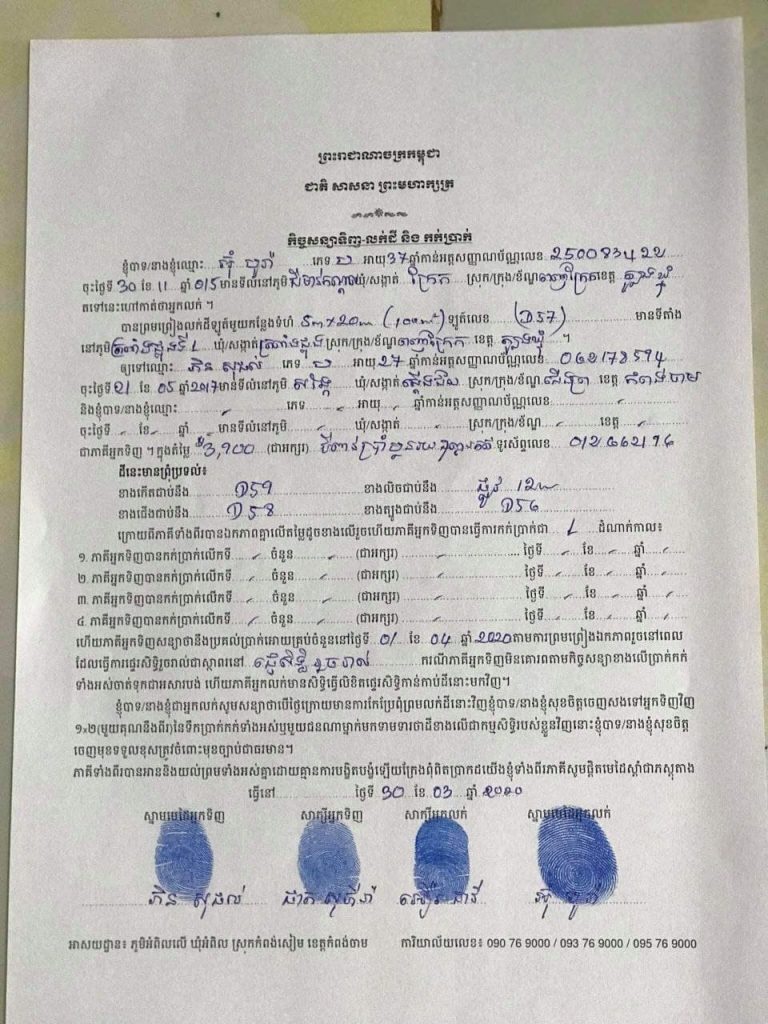 ព្រះរាជាណាចក្រកម្ពុជា
ជាតិ សាសនា ព្រះមហាក្សត្រ
កិច្ចសន្យាទិញ-លក់ដី និង កក់ប្រាក់
ខ្ញុំបាទ/នាងខ្ញុំឈ្មោះ ភេទ ប អាយុ 37 ឆ្នាំកាន់អត្តសញ្ញាណប័ណ្ណលេខ
ចុះថ្ងៃទី 30 ខែ 11 ឆ្នាំ 015 មានទីលំនៅភូមិ ឃុំ/សង្កាត់ ក្រែក ស្រុក/ក្រុង/ខ័ណ្ឌ ពញាក្រែក ខេត្ត ត្បូងឃ្មុំ
តទៅនេះហៅកាត់ថាអ្នកលក់ ។
បានព្រមព្រៀងលក់ដីឡូត៍មួយកន្លែងទំហំ 5m x 20m (100m²) ឡូត៍លេខ (D57) មានទីតាំង
នៅភូមិ ឃុំ/សង្កាត់ ស្រុក/ក្រុង/ខ័ណ្ឌ ពញាក្រែក ខេត្ត ត្បូងឃ្មុំ ។
ឲ្យទៅឈ្មោះ ភិន សុផល់ ភេទ ប អាយុ 27 ឆ្នាំកាន់អត្តសញ្ញាណប័ណ្ណលេខ
ចុះថ្ងៃទី 21 ខែ 05 ឆ្នាំ 2017 មានទីលំនៅភូមិ ឃុំ/សង្កាត់ ស្រុក/ក្រុង/ខ័ណ្ឌ ជើងព្រៃ ខេត្ត កំពង់ចាម
និងខ្ញុំបាទ/នាងខ្ញុំឈ្មោះ ភេទ អាយុ ឆ្នាំកាន់អត្តសញ្ញាណប័ណ្ណលេខ
ចុះថ្ងៃទី ខែ ឆ្នាំ មានទីលំនៅភូមិ ឃុំ/សង្កាត់ ស្រុក/ក្រុង/ខ័ណ្ឌ ខេត្ត
ជាភាគីអ្នកទិញ ។ ក្នុងតំម្លៃ $3,900 (ជាអក្សរ) បីពាន់ប្រាំបួនរយដុល្លារគត់ ទូរស័ព្ទលេខ
ដីនេះមានព្រំប្រទល់៖
ខាងកើតជាប់នឹង D59 ខាងលិចជាប់នឹង ផ្លូវ 12m
ខាងជើងជាប់នឹង D58 ខាងត្បូងជាប់នឹង D56
ក្រោយពីភាគីទាំងពីរបានឯកភាពគ្នាលើតម្លៃដូចខាងលើរួចហើយភាគីអ្នកទិញបានធ្វើការកក់ប្រាក់ជា ដំណាក់កាល៖
១. ភាគីអ្នកទិញបានកក់ប្រាក់លើកទី ចំនួន (ជាអក្សរ) ថ្ងៃទី ខែ ឆ្នាំ
២. ភាគីអ្នកទិញបានកក់ប្រាក់លើកទី ចំនួន (ជាអក្សរ) ថ្ងៃទី ខែ ឆ្នាំ
៣. ភាគីអ្នកទិញបានកក់ប្រាក់លើកទី ចំនួន (ជាអក្សរ) ថ្ងៃទី ខែ ឆ្នាំ
៤. ភាគីអ្នកទិញបានកក់ប្រាក់លើកទី ចំនួន (ជាអក្សរ) ថ្ងៃទី ខែ ឆ្នាំ
ហើយភាគីអ្នកទិញសន្យាថានឹងប្រគល់ប្រាក់អោយគ្រប់ចំនួននៅថ្ងៃទី 01 ខែ 04 ឆ្នាំ 2020 តាមការព្រមព្រៀងឯកភាពរួចនៅពេល
ដែលធ្វើការផ្ទេរសិទ្ធិរួចរាល់ជាស្ថាពរនៅ ករណីភាគីអ្នកទិញមិនគោរពតាមកិច្ចសន្យាខាងលើប្រាក់កក់
ទាំងអស់ចាត់ទុកជាអសារបង់ ហើយភាគីអ្នកលក់មានសិទ្ធិធ្វើលិខិតផ្ទេរសិទ្ធិកាន់កាប់ដីនោះមកវិញ។
ខ្ញុំបាទ/នាងខ្ញុំជាអ្នកលក់សូមសន្យាថាបើថ្ងៃក្រោយមានការកែប្រែពុំព្រមលក់ដីនោះវិញខ្ញុំបាទ/នាងខ្ញុំសុខចិត្តចេញសងទៅអ្នកទិញវិញ
១x២(មួយគុណនឹងពីរ)នៃទឹកប្រាក់កក់ទាំងអស់ឬមួយជនណាម្នាក់មកទាមទារថាដីខាងលើជាកម្មសិទ្ធិរបស់ខ្លួនវិញនោះខ្ញុំបាទ/នាងខ្ញុំសុខចិត្ត
ចេញមុខទទួលខុសត្រូវចំពោះមុខច្បាប់ជាធរមាន។
ភាគីទាំងពីរបានអាននិងយល់ព្រមទាំងអស់គ្នាដោយគ្មានការបង្ខិតបង្ខំឡើយក្រែងពុំពិតប្រាកដយើងខ្ញុំទាំងពីរភាគីសូមផ្តិតមេដៃស្តាំជាភស្តុតាង
ធ្វើនៅ ថ្ងៃទី 30 ខែ 03 ឆ្នាំ 2020
ស្នាមមេដៃអ្នកទិញ សាក្សីអ្នកទិញ សាក្សីអ្នកលក់ ស្នាមមេដៃអ្នកលក់
ភិន សុផល់
អាសយដ្ឋាន៖ ភូមិអំពិលលើ ឃុំអំពិល ស្រុកកំពង់សៀម ខេត្តកំពង់ចាម ការិយាល័យលេខ៖ 090 76 9000 / 093 76 9000 / 095 76 9000